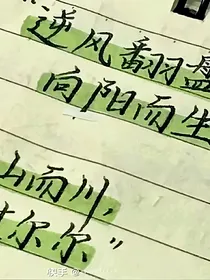 逆风翻盘
向阳而生
山而川,
尔尔”
快手